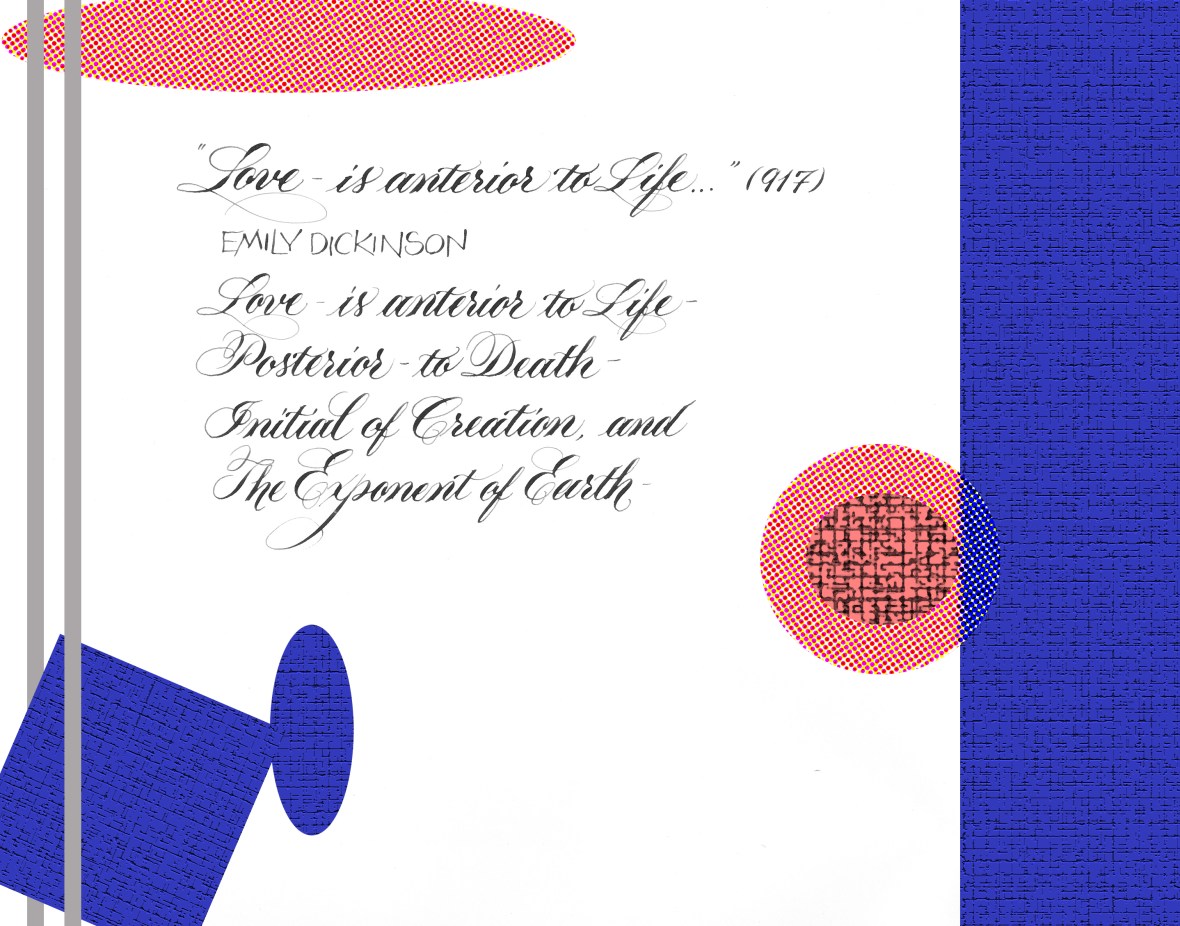 "Love - is anterior to Life..." (917)
EMILY DICKINSON
Love - is anterior to Life -
Posterior - to Death -
Initial of Creation, and
The Exponent of Earth -